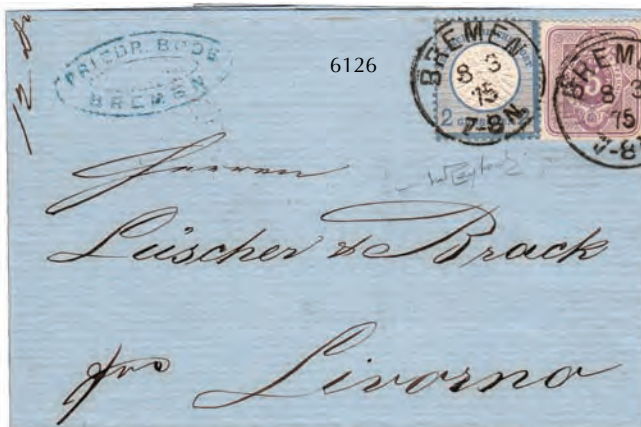 12
FRIEDR. BOOS
BREMEN
6126
BREMEN
8 3
75
7-8 N.
2
BREME
8 3
75
7-8
5
Herren
Lüscher & Brack
Livorno